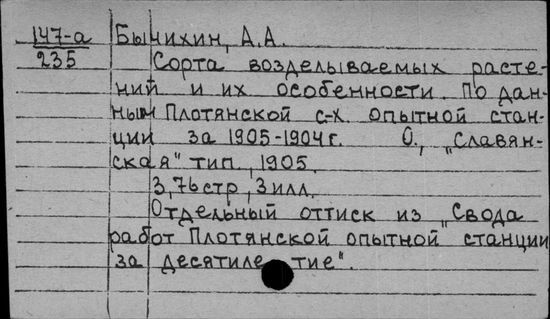 147-а Бычихин, А.А.
235 Сорта возделываемых расте-
ний и их особенности по дан-
ным Плотянской с-х. опытной стан-
ции за 1905-1904г. О., „Славян-
ская" тип., 1905.
3,76стр, 3илл.
Отдельный оттиск из „Свода
работ Плотянской опытной станции
за десятиле тие".